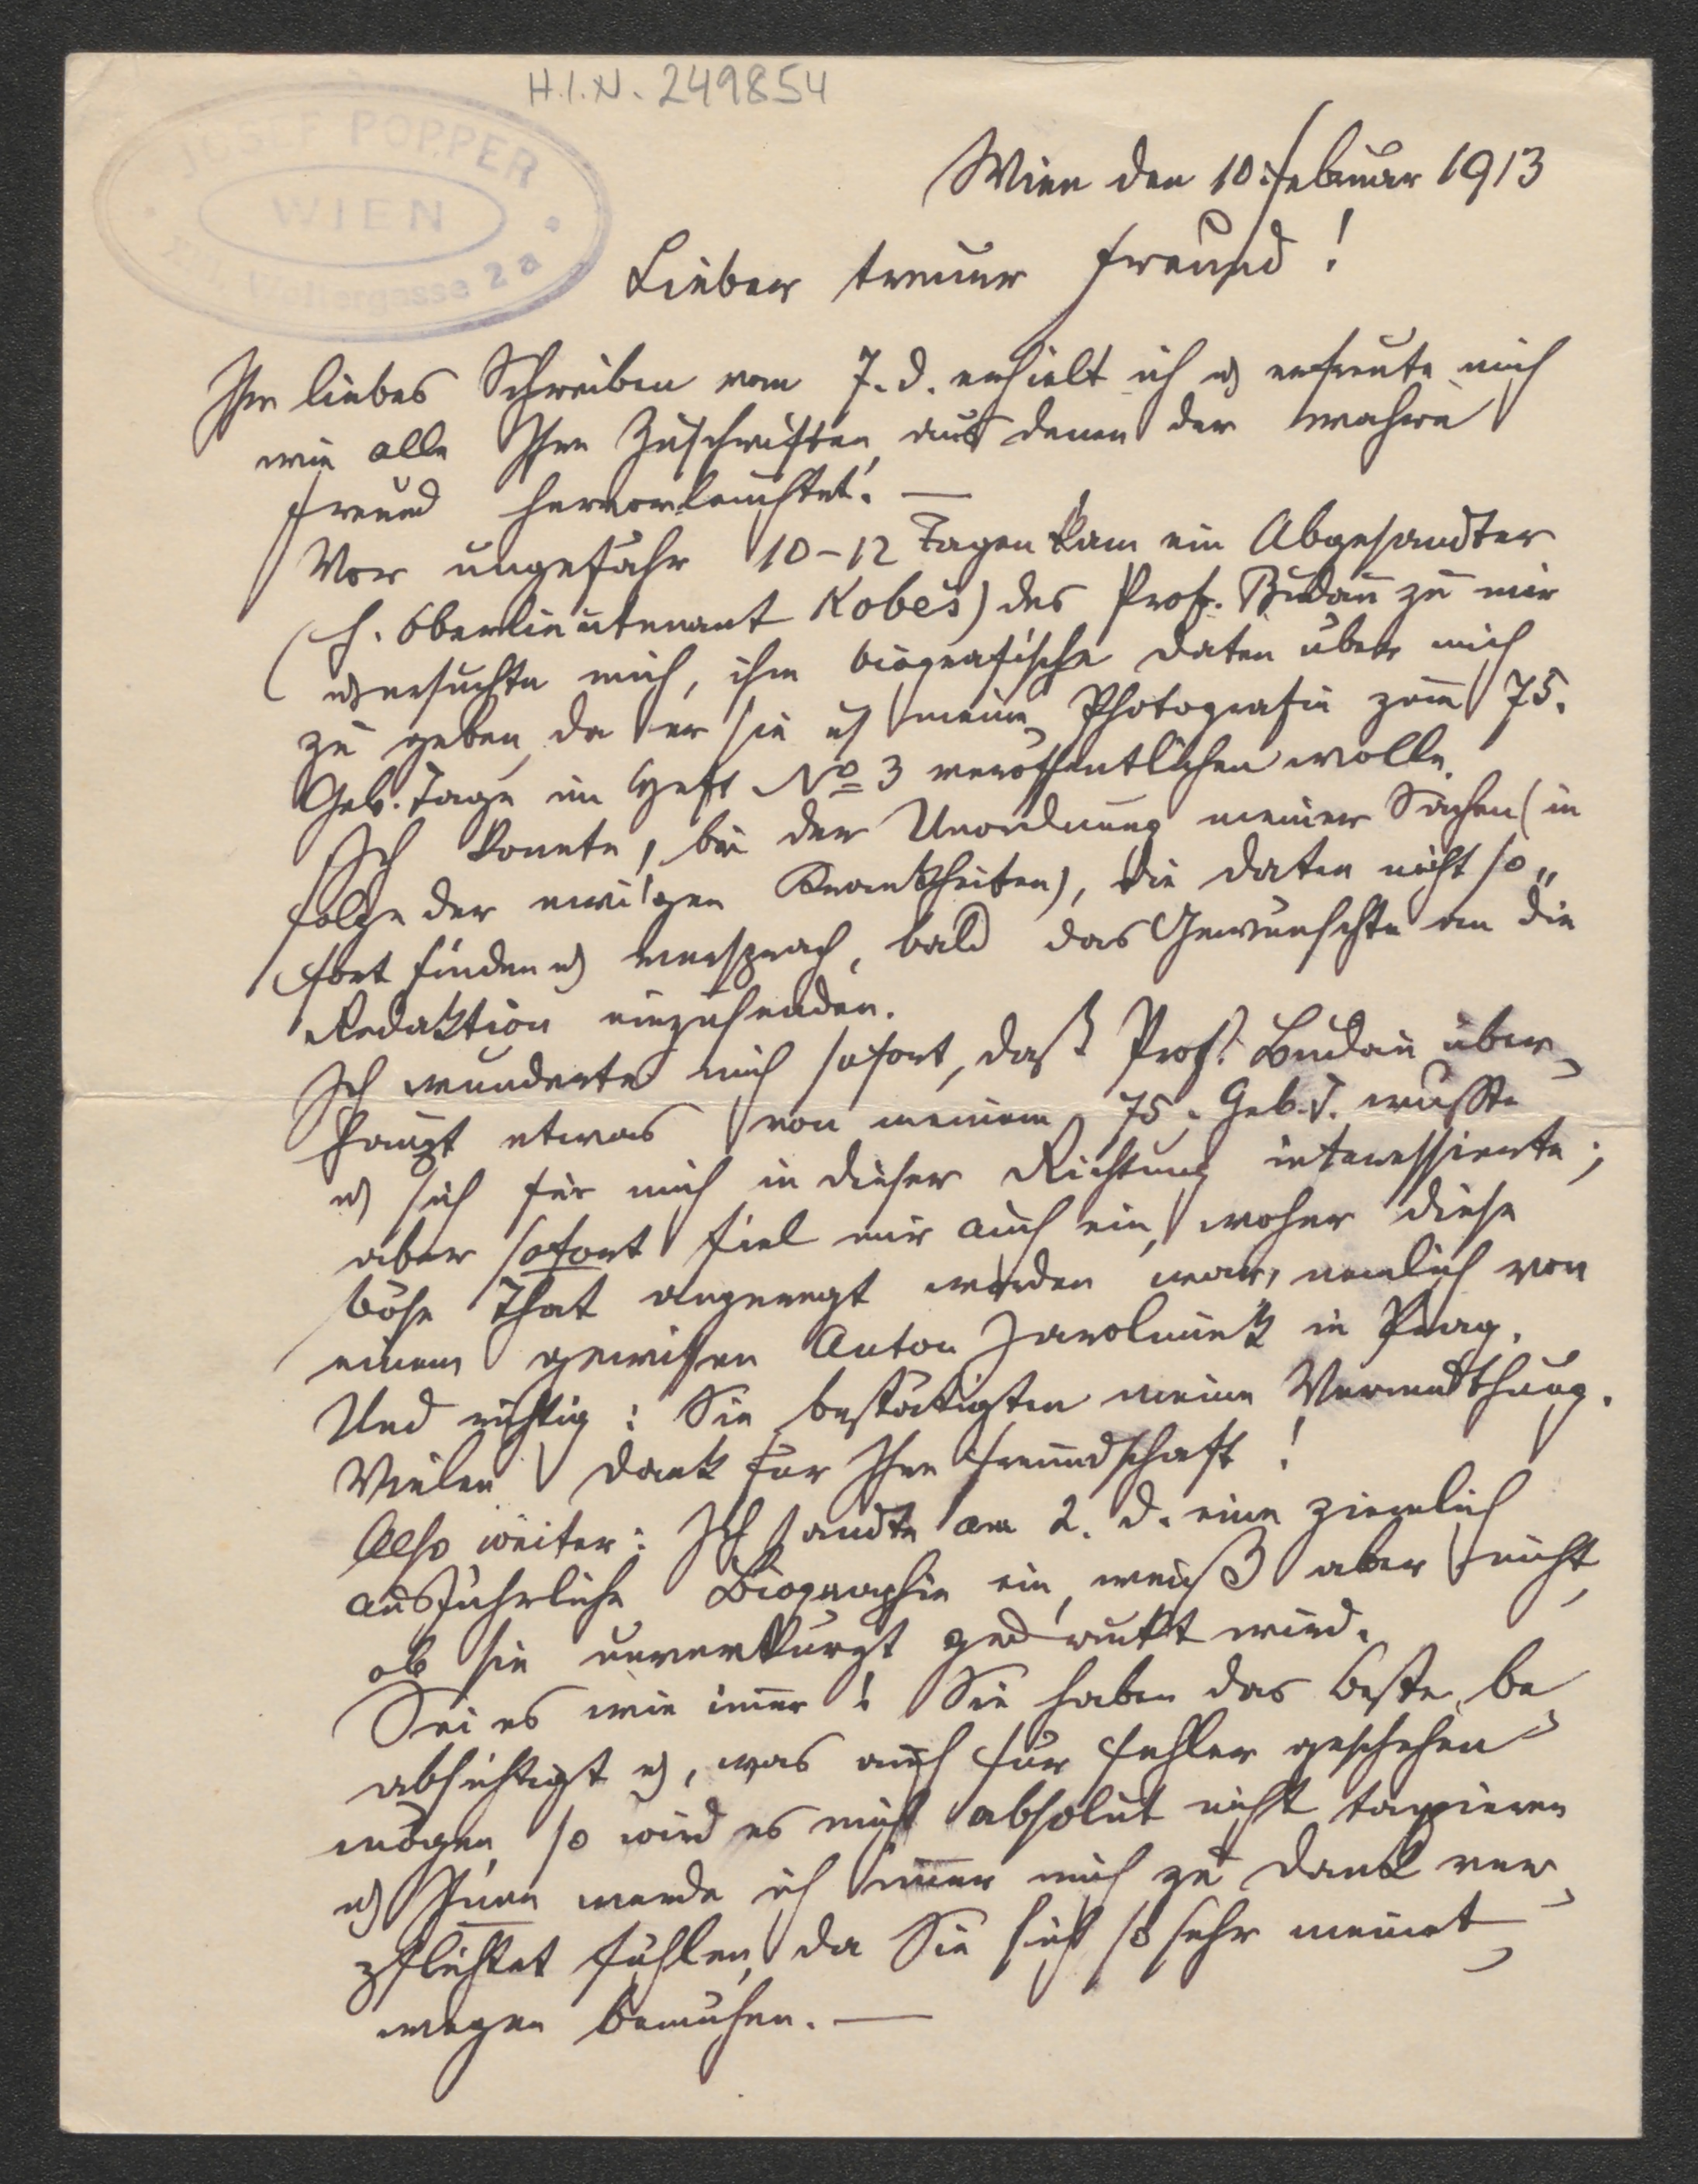 H.I.N. 249854
JOSEF POPPER
WIEN
gasse 2a
Wien den 10. Februar 1913
Lieber treuer Freund!
Ihr liebes Schreiben vom 7. d. erhielt ich u erfreute mich
wie alle Ihre Zuschriften, aus denen der wahre
Freund hervorleuchtet. —
Vor ungefähr 10–12 Tagen kam ein Abgesandter
(H. Oberlieutenant Kobes) des Prof. Budau zu mir
u ersuchte mich, ihm biografische Daten über mich
zu geben, da er sie u meine Photografie zum 75.
Geb. Tage im Heft No 3 veröffentlichen wolle.
Ich konnte, bei der Unordnung meiner Sachen (in
folge der ewigen Krankheiten), die Daten nicht so„
fort finden u versprach, bald das Gewünschte an die
Redaktion einzusenden.
Ich wunderte mich sofort, daß Prof. Budau über-
haupt etwas von meinem 75. Geb. T. wußte
u sich für mich in dieser Richtung interessierte;
aber sofort fiel mir auch ein, woher diese
böse That angeregt worden war, nemlich von
einem gewissen Anton Jarolimek in Prag.
Und richtig: Sie bestätigten meine Vermuthung.
Vielen Dank für Ihre Freundschaft!
Also weiter: Ich sandte am 2. d. eine ziemlich
ausführliche Biographie ein, weiß aber nicht,
ob sie unverkürzt gedruckt wird.
Sei es wie immer! Sie haben das Beste be-
absichtigt u, was auch für Fehler geschehen
mögen, so wird es mich absolut nicht tangieren
u Ihnen werde ich immer mich zu Dank ver-
pflichtet fühlen, da Sie sich so sehr meinet-
wegen bemühen. —